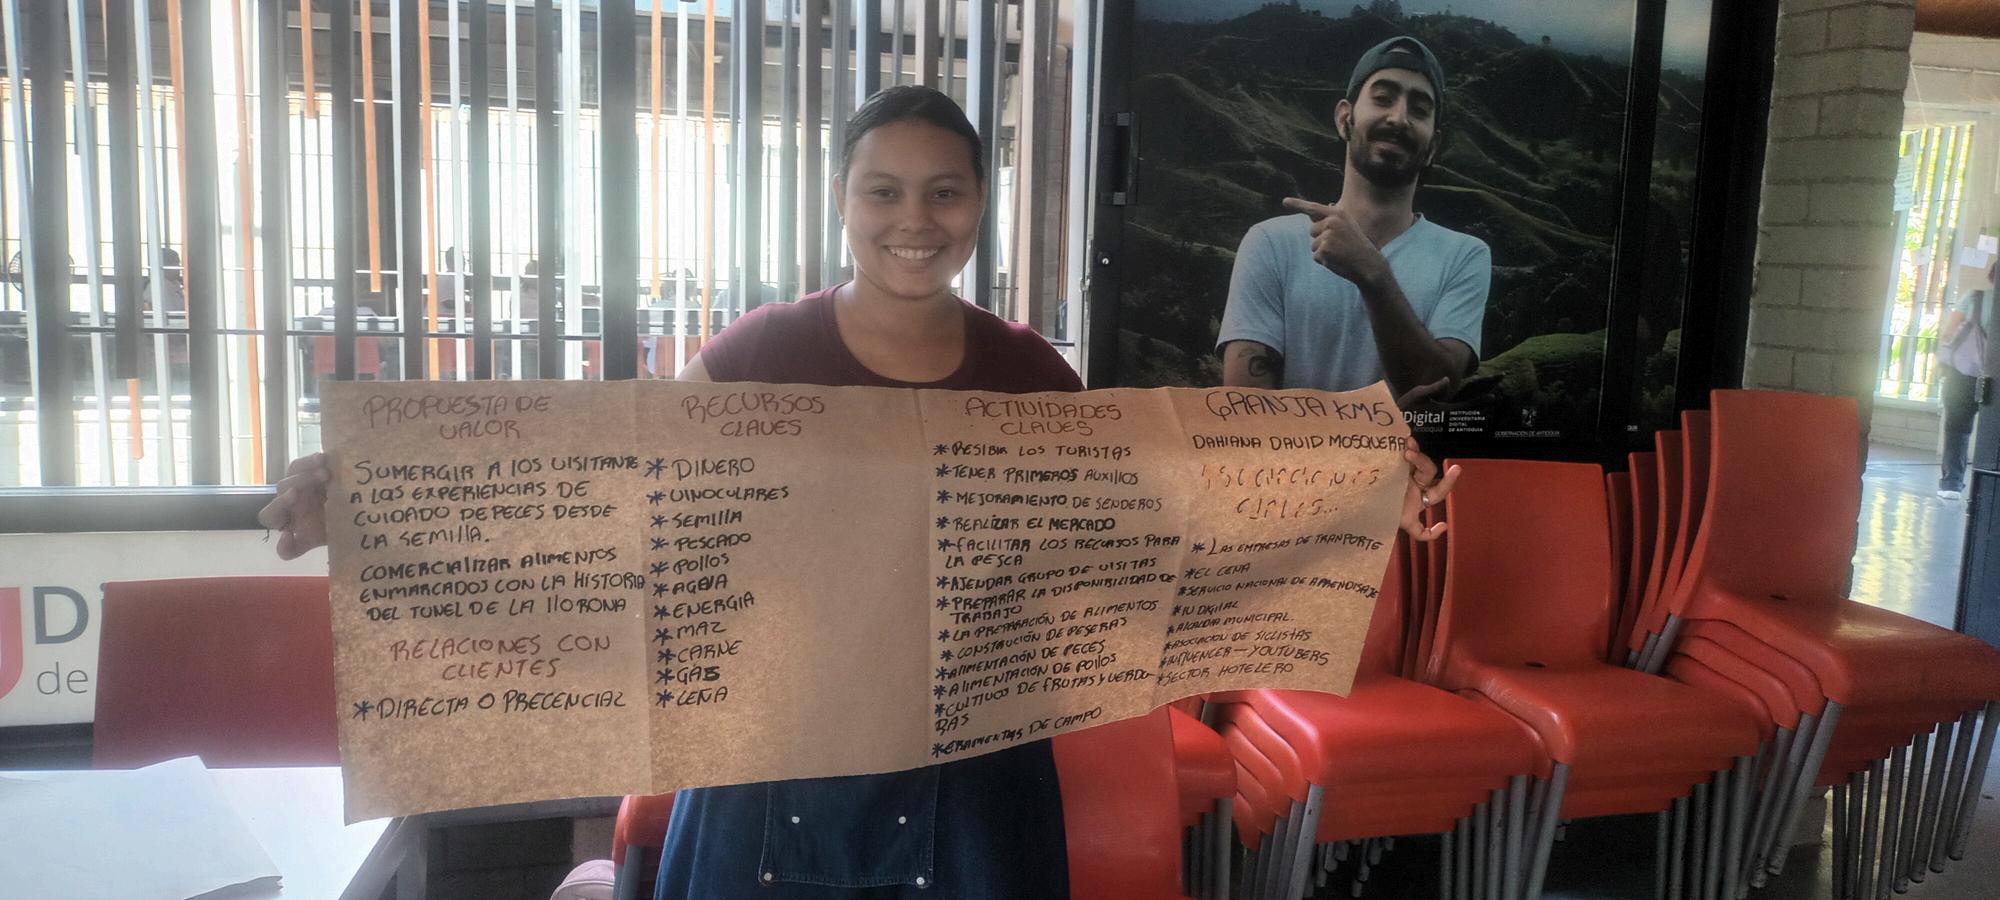 PROPUESTA DE
VALOR
SUMERGIR A lOS VISITANTE
A LAS EXPERIENCIAS DE
CUIDADO DE PECES DESDE
LA SEMIllA.
COMERCIAlIZAR AlIMENTOS
ENMARCADOS CON LA HISTORIA
DEL TUNEL DE LA llORONA
RELACIONES CON
CLIENTES
* DIRECTA O PRECENCIAL
RECURSOS
CLAVES
* DINERO
* VINOCULARES
* SEMIllA
* PESCADO
* POllOS
* AGUA
* ENERGIA
* MAZ
* CARNE
* GAS
* LEÑA
ACTIVIDADES
CLAVES
* RESIBIR LOS TURISTAS
* TENER PRIMEROS AUXIlIOS
* MEJORAMIENTO DE SENDEROS
* REALIZAR EL MERCADO
* FACILITAR LOS RECURSOS PARA
LA PESCA
* AJENDAR GRUPO DE VISITAS
* PREPARAR LA DISPONIBILIDAD DE
TRABAJO
* LA PREPARACIÓN DE ALIMENTOS
* CONSTRUCIÓN DE PESERAS
* AlIMENTACIÓN DE PECES
* AlIMENTACIÓN DE POllOS
* CULTIVOS DE FRUTAS Y VERDU-
RAS
* DE CAMPO
GRANJA KM5
DAHIANA DAVID MOSQUERA
* LAS EMPRESAS DE TRANPORTE
* EL CENA
* SERVICIO NACIONAL DE APRENDISAJE
* IU DIGITAL
* AlCALDIA MUNICIPAL.
* ASOCIACION DE SICLISTAS
* INFLUENCER — YOUTUBERS
* SECTOR HOTELERO
Digital
INSTITUCIÓN
UNIVERSITARIA
DIGITAL
DE ANTIOQUIA
GOBERNACIÓN DE ANTIOQUIA
Di
de